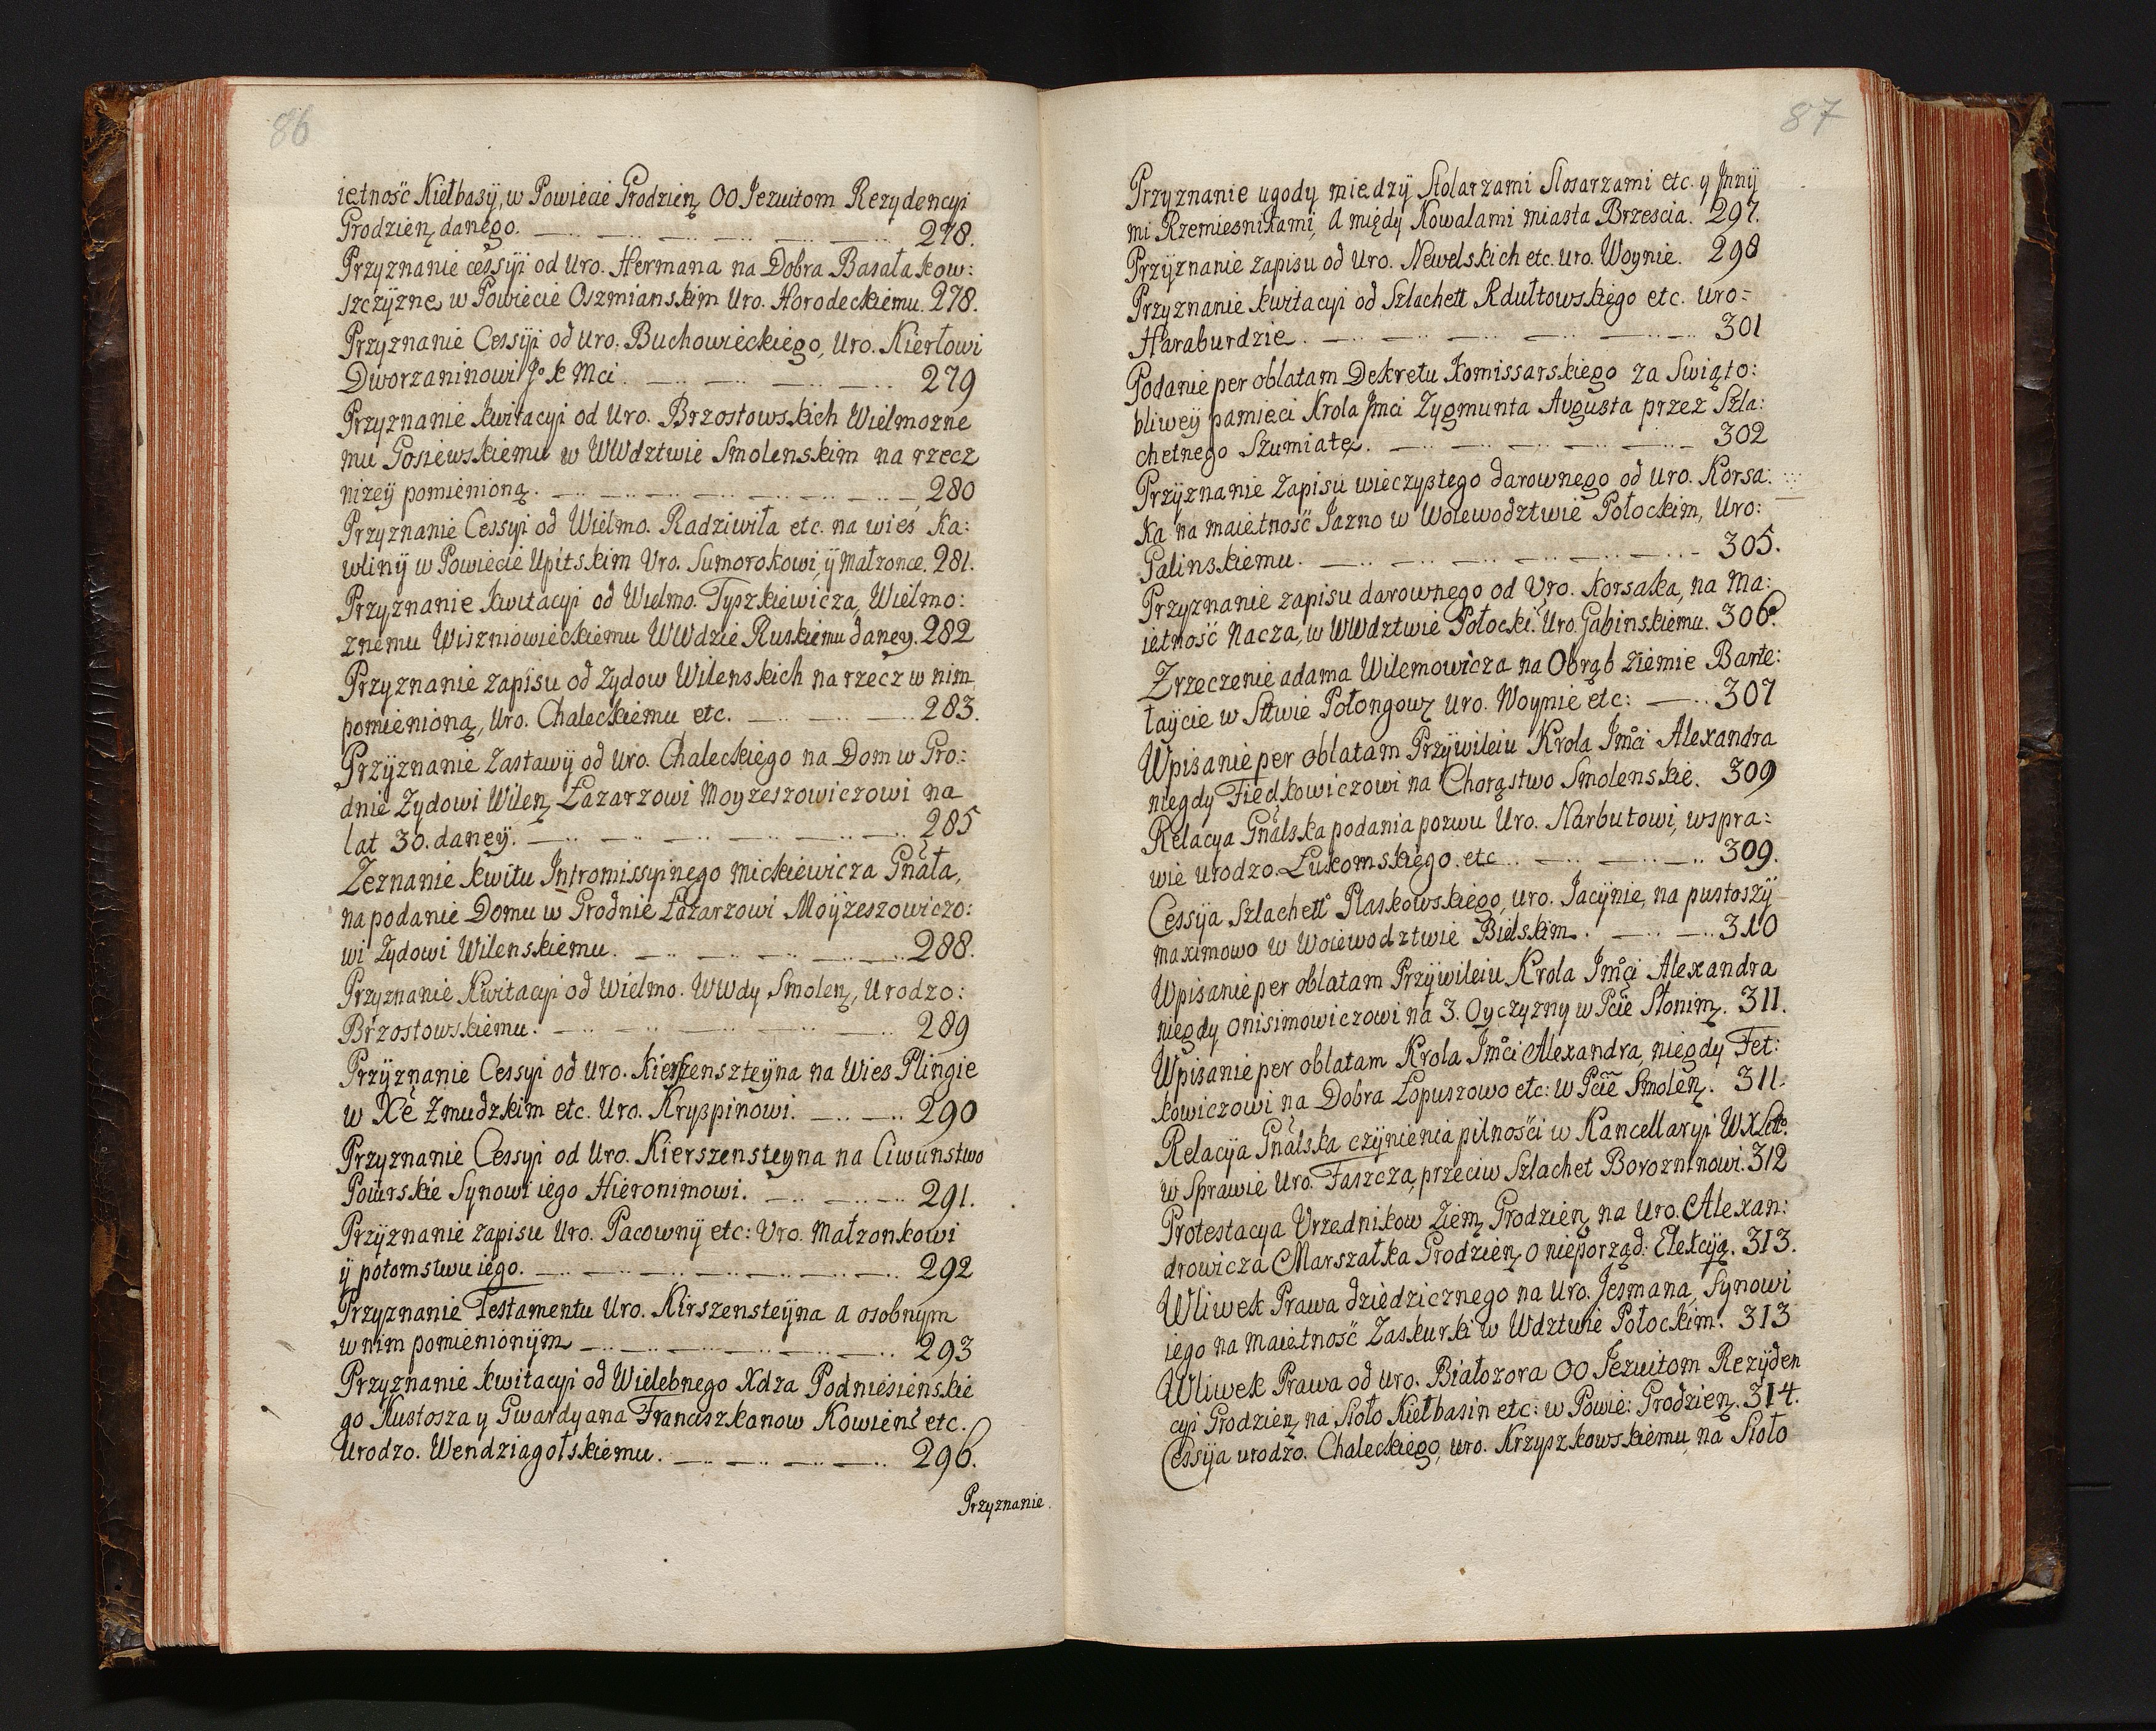 86
ietność Kiełbasÿ, w Powiecie Grodzien̨ OO Jezuitom Rezydencyi
Grodzien̨ danego. 278.
Przyznanie cessÿi od Uro. Hermana na Dobra Basałakow:
szczÿzne w Powiecie Oszmianskim Uro. Horodeckiemu. 278.
Przyznanie Cessÿi od Uro. Buchowieckiego, Uro. Kierłowi
Dworzaninowi Jo k Mci. 279
Przyznanie kwitacyi od Uro. Brzostowskich Wielmozne
mu Gosiewskiemu w WWdztwie Smolenskim na rzecz
nizeÿ pomienioną. 280
Przyznanie Cessyi od Wielmo. Radziwiła etc. na wies Ka:
wlinÿ w Powiecie Upitskim Uro. Sumorokowi, ÿ Małzonce. 281.
Przyznanie kwitacyi od Wielmo. Tyszkiewicza, Wielmo:
znemu Wiszniowieckiemu WWdzie Ruskiemu daney. 282
Przyznanie zapisu od Zydow Wilenskich na rzecz w nim
pomienioną, Uro. Chaleckiemu etc. 283.
Przÿznanie Zastawÿ od Uro. Chaleckiego na Dom w Gro:
dnie Zydowi Wilen̨ Łazarzowi Moyzeszowiczowi na
lat 30. daneÿ. 285
Zeznanie kwitu Intromissyinego Mickiewicza Gnała,
na podanie Domu w Grodnie Łazarzowi Moÿzeszowiczo:
wi Zydowi Wilenskiemu. 288.
Przyznanie Kwitacyi od Wielmo. WWdy Smolen̨, Urodzo:
Brzostowskiemu. 289
Przÿznanie Cessyi od Uro. Kierszenszteÿna na Wies Plingie
w Xe Zmudzkim etc. Uro. Kryspinowi. 290
Przyznanie Cessyi od Uro. Kierszensteyna na Ciwunstwo
Poiurskie Synowi iego Hieronimowi. 291.
Przÿznanie zapisu Uro. Pacownÿ etc: Uro. Małzonkowi
ÿ potomstwu iego. 292
Przyznanie Testamentu Uro. Kirszensteÿna a osobnym
w nim pomienionÿm 293
Przyznanie kwitacyi od Wielebnego Xdza Podniesienskie
go Kustosza y Gwardyana Franciszkanow Kowien: etc.
Urodzo. Wendziagolskiemu. 296.
Przyznanie.
87
Przyznanie ugody miedzÿ Stolarzami Slosarzami etc. y Jnnÿ
mi Rzemiesnikami, a międy Kowalami miasta Brzescia. 297.
Przÿznanie zapisu od Uro. Newelskich etc. Uro. Woynie. 298
Przyznanie kwitacyi od Szlachett Rdułtowskiego etc. Uro:
Haraburdzie. 301
Podanie per oblatam Dekretu Komissarskiego za Swiąto:
bliweÿ pamieci Krola Jmci Zygmunta Augusta przez Szla:
chetnego Szumiatę. 302
Przÿznanie Zapisu wieczystego darownego od Uro. Korsa:
ka na maietność Jazno w Woiewodztwie Połockim, Uro:
Galinskiemu. 305.
Przyznanie zapisu darownego od Uro. Korsaka, na Ma:
ietność Nacza, w WWdztwie Połocki. Uro. Gabinskiemu. 306.
Zrzeczenie adama Wilemowicza na Obrąb ziemie Barte:
łaÿcie w Sttwie Połongow̨ Uro. Woynie etc: 307
Wpisanie per oblatam Przÿwileiu Krola Jmci Alexandra
niegdy Fiedkowiczowi na Chorąstwo Smolenskie. 309
Relacya Gnalska podania pozwu Uro. Narbutowi, wspra:
wie Urodzo. Łukomskiego. etc 309.
Cessÿa Szlachett Plaskowskiego, Uro. Jacÿnie, na pustoszÿ
maximowo w Woiewodztwie Bielskim. 310
Wpisanie per oblatam Przÿwileiu Krola Jmci Alexandra
niegdy Onisimowiczowi na 3. Oyczyzny w Pcie Słonim̨. 311.
Wpisanie per oblatam Krola Jmci Alexandra, niegdy Fet:
kowiczowi na Dobra Łopuszowo etc: w Pcie Smolen̨. 311.
Relacÿa Gnalska czÿnienia pilności w Kancellaryi WXLitt.
w Sprawie Uro. Faszcza, przeciw Szlachet Borozninowi. 312
Protestacya Urzednikow Ziem̨ Grodzien̨ na Uro. Alexan:
drowicza Marszałka Grodzien̨ o nieporząd: Elekcÿą. 313.
Wliwek Prawa dziedzicznego na Uro. Jesmana, Synowi
iego na Maietność Zaskurki w Wdztwie Połockim. 313
Wliwek Prawa od Uro. Białozora OO Jezuitom Rezÿden
cyi Grodzien̨ na Sioło Kiełbasin etc: w Powie: Grodzien̨. 314.
Cessÿa urodzo. Chaleckiego, Uro. Krzyszkowskiemu, na Sioło